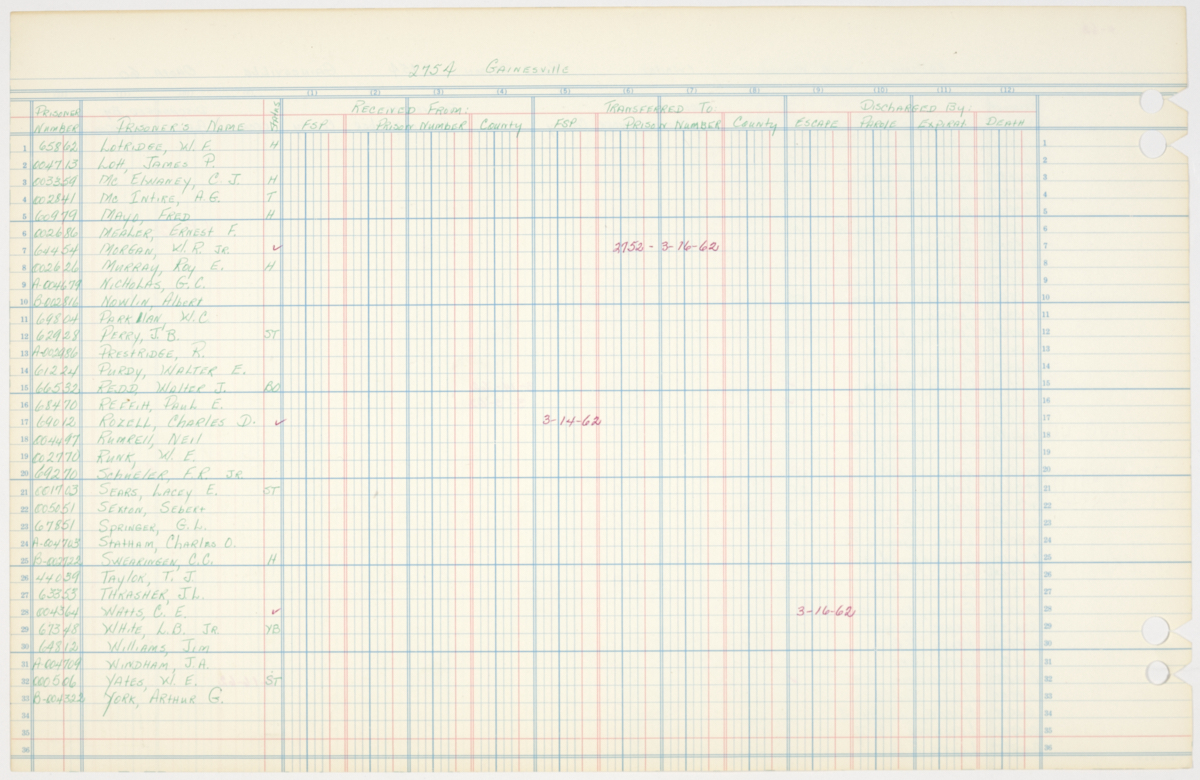 2754 Gainesville
(1) (2) (3) (4) (5) (6) (7) (8) (9) (10) (11) (12)
Prisoner Received From: Transferred To: Discharged By:
Number Prisoner's Name FSP Prison Number County FSP Prison Number County Escape Parole Expirat. Death
1 65862 Lotridge, W. F. H 1
2 004713 Lott, James P. 2
3 003359 Mc Elwaney, C. J. H 3
4 002841 Mc Intire, A. G. T 4
5 60979 Mayo, Fred H 5
6 002686 Mealor, Ernest F. 6
7 64454 Morgan, W. R. Jr. ✓ 2752 - 3-16-62 7
8 002626 Murray, Roy E. H 8
9 A-004679 Nicholas, G. C. 9
10 B-002816 Nowlin, Albert 10
11 69804 Parkman, W. C. 11
12 62928 Perry, J. B. ST 12
13 Prestridge, R. 13
14 61224 Purdy, Walter E. 14
15 66532 Redd, Walter J. 15
16 68470 Paul E. 16
17 69012 Rozell, Charles D. ✓ 3-14-62 17
18 004497 Neil 18
19 002770 Runk, W. E. 19
20 69270 F. R. Jr. 20
21 001703 Sears, Lacey E. ST 21
22 005051 Sexton, Sebert 22
23 67851 Springer, G. L. 23
24 A-004703 Statham, Charles O. 24
25 B-002722 Swearingen, C. C. H 25
26 44039 Taylor, T. J. 26
27 63353 Thrasher, J. L. 27
28 004364 Watts, C. E. ✓ 3-16-62 28
29 67348 White, L. B. Jr. YB 29
30 64812 Williams, Jim 30
31 A-004709 Windham, J. A. 31
32 000506 Yates, W. E. ST 32
33 B-004322 York, Arthur G. 33
34 34
35 35
36 36